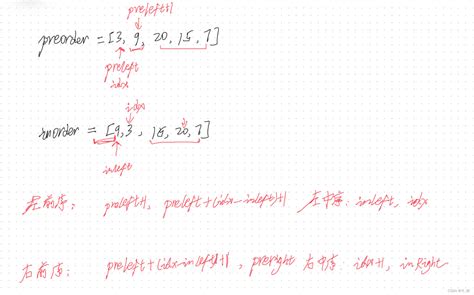 preleft+1
preorder = [3, 9, 20, 15, 7]
preleft
idx
idx
inorder = [9, 3, 15, 20, 7]
inleft
左前序: preleft+1, preleft+(idx-inleft)+1 左中序: inleft, idx
右前序: preleft+(idx-inleft)+1, preright 右中序: idx+1, inRight